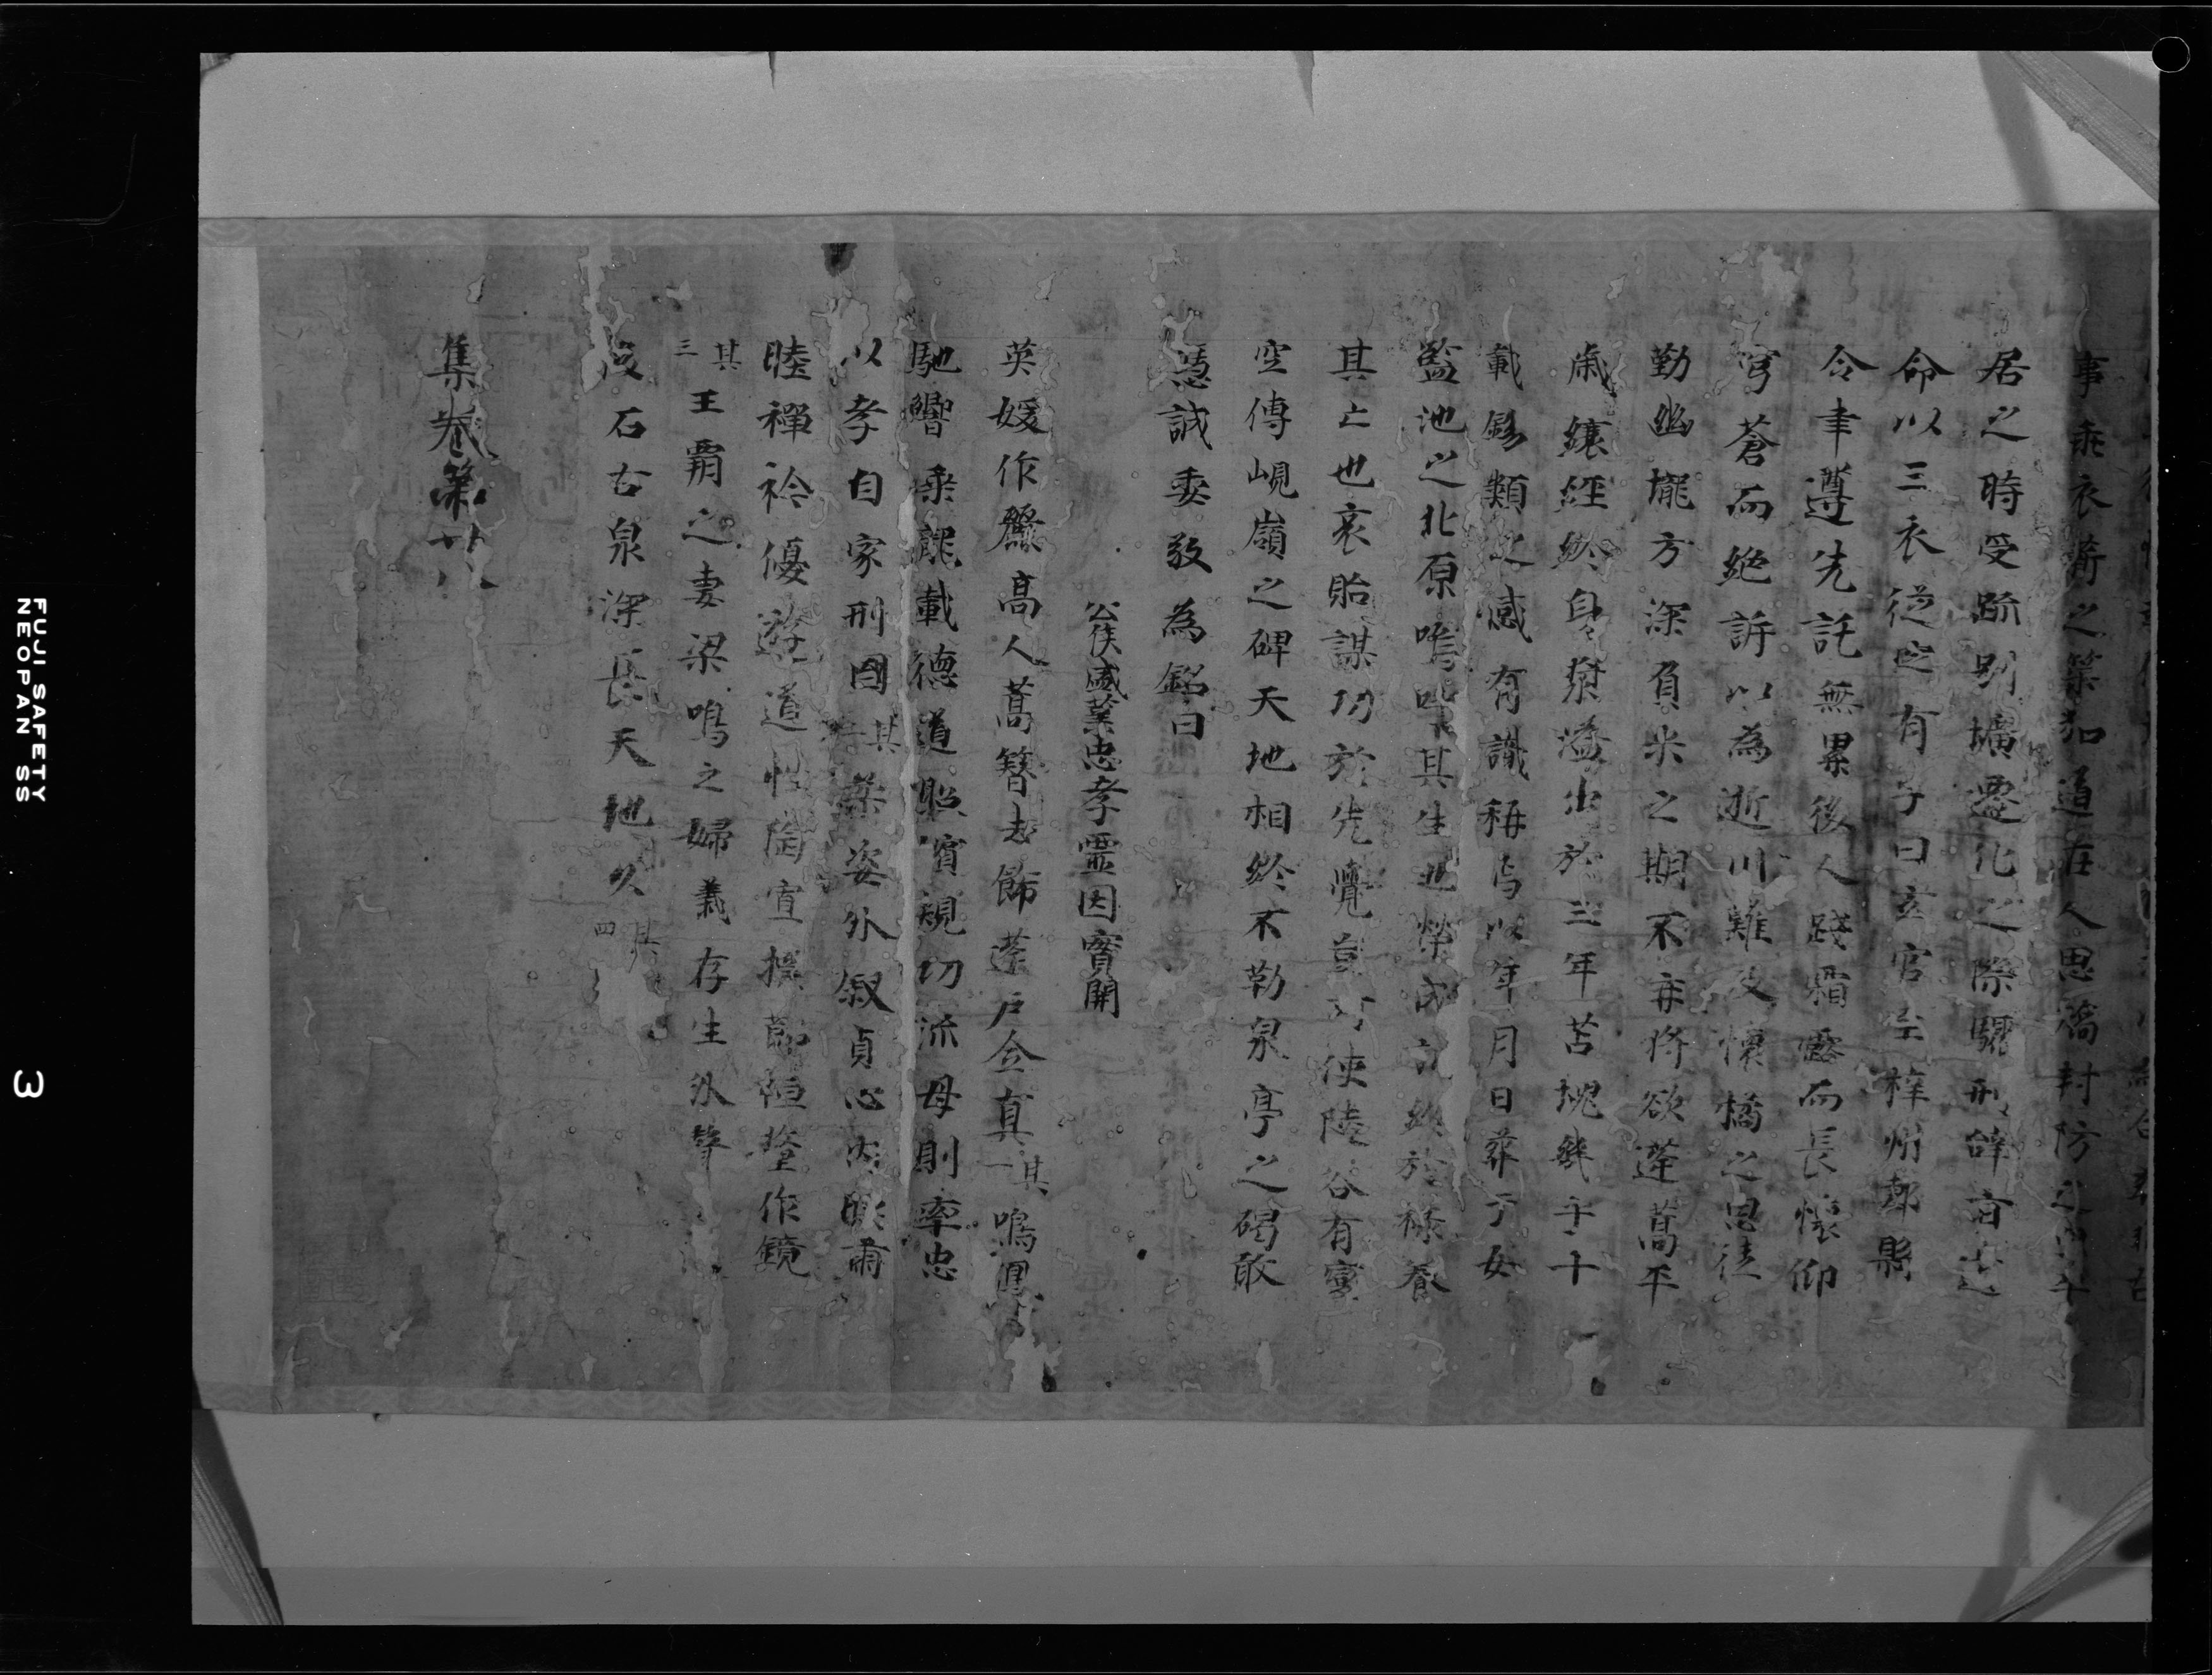 事乖衣薪之策加道在人思矯封防之
居之時受跡別壙遷化之際驅刑辞
命以三衣従空有子曰玄官至梓州郪縣
令聿遵先託無累後人踐霜露而長懐仰
穹蒼而絶訴以為逝川難及懐橘之思徒
勤幽壠方深負米之期不再将欲蓬蒿平
纕絰終身粲溢出於三年苫塊幾乎十
載錫類之感有識稱焉以年月日葬于女
監池之北原嗚呼其生也榮終於禄養
其亡也哀貽謀功於先覺豈可使陵谷有變
空傳峴嶺之碑天地相終不勒泉亭之碣敢
憑誠委敬為銘曰
公侯盛業忠孝霊因寔開
英媛作儷高人蒿簪去飾蓬戸全真其一鳴鳳
馳響乗龍載徳道照嬪規功流母則率忠
以孝自家刑國其二 姿外叙貞心内 肅
睦禅衿優遊道性 宣操節 作鏡
其三王覇之妻梁鳴之婦義存生外聲
石古泉深長天地久其四
集巻第廿
FUJI SAFETY
NEOPAN SS
3